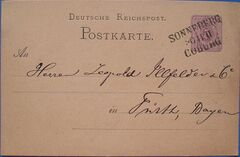 DEUTSCHE REICHSPOST.
POSTKARTE.
SONNEBERG
COBURG
An
Herren Leopold Illfelder & Co
in Fürth, Bayern